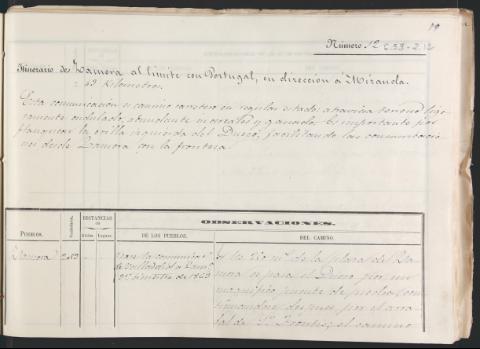 19
Número 12 C 53-2-12
Itinerario de Zamora al límite con Portugal, en dirección a Miranda.
49 Kilometros.
Esta comunicación es camino carretero en regular estado, atraviesa terreno lige-
ramente ondulado, abundante en cereales y ganado. Es importante por
flanquear la orilla izquierda del Duero, facilitando las comunicacio-
nes desde Zamora con la frontera.
OBSERVACIONES.
DISTANCIAS
PUEBLOS.
DE LOS PUEBLOS.
DEL CAMINO.
Zamora
Vease la comunicac.
de Valladolid a Zamora
de 1849
de la plaza de Za-
mora se pasa el Duero por un
magnifico puente de piedra, con-
tinuandose despues por el arra-
bal de Sn Frontis; el camino